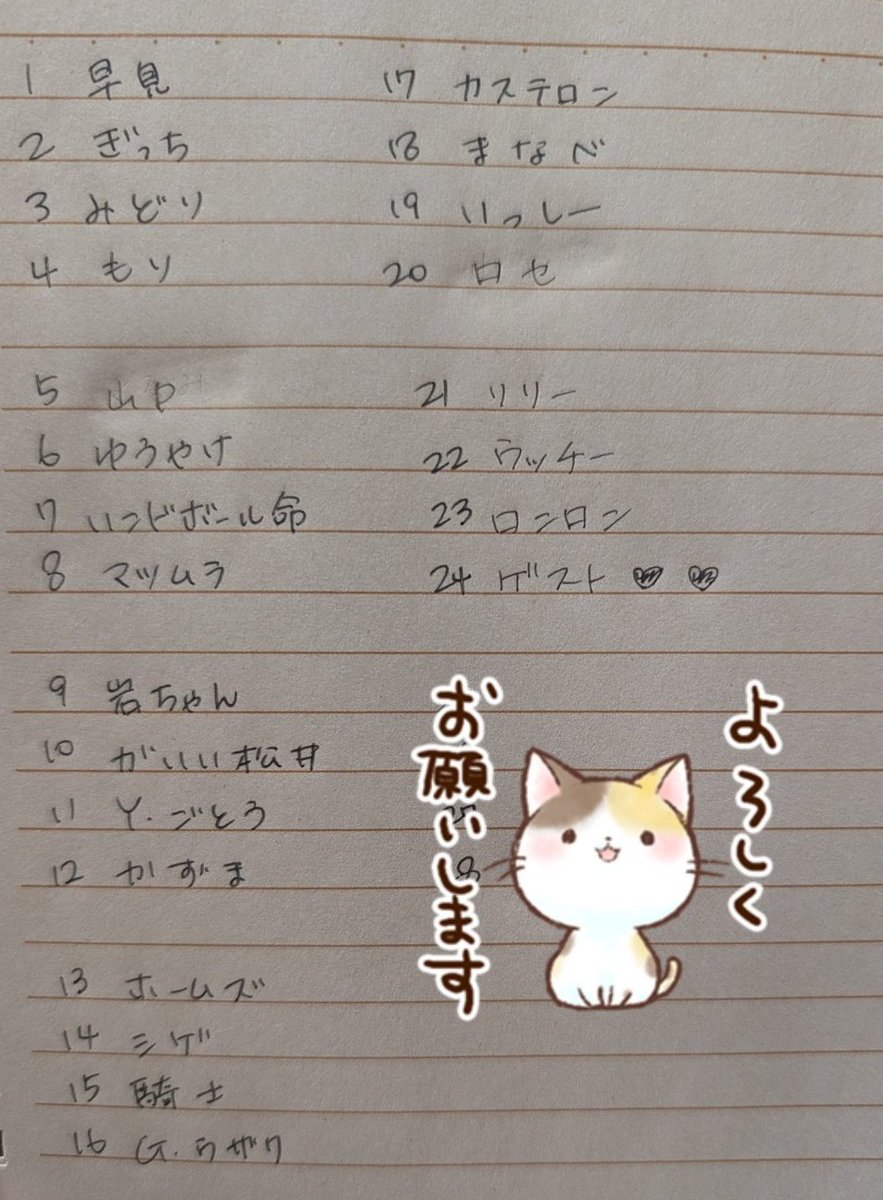 1 早見
2 ぎっち
3 みどり
4 もり
5 山P
6 ゆうやけ
7 ハンドボール命
8 マツムラ
9 岩ちゃん
10 がいい松井
11 Y.ごとう
12 かずま
13 ホームズ
14 シゲ
15 騎士
16 G.ラザク
17 カステロン
18 まなべ
19 いっしー
20 ロセ
21 リリー
22 ウッチー
23 ロンロン
24 ゲスト
よろしく
お願いします